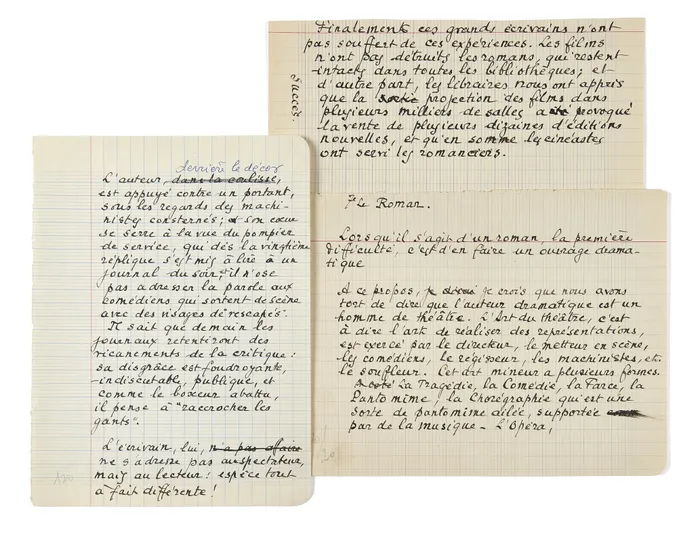 Finalement ces grands écrivains n'ont
pas souffert de ces expériences. Les films
n'ont pas détruits les romans, qui restent
intacts dans toutes les bibliothèques ; et
d'autre part, les libraires nous ont appris
que la sortie projection des films dans
plusieurs milliers de salles a été provoqué
la vente de plusieurs dizaines d'éditions
nouvelles, et qu'en somme les cinéastes
ont servi les romanciers.
succès
derrière le décor
L'auteur, dans la coulisse,
est appuyé contre un portant,
sous les regards des machi-
nistes consternés ; et son cœur
se serre à la vue du pompier
de service, qui dès la vingtième
réplique s'est mis à lire à un
journal du soir, il n'ose
pas adresser la parole aux
comédiens qui sortent de scène
avec des visages de rescapés.
Il sait que demain les
journaux retentiront des
ricanements de la critique :
sa disgrâce est foudroyante,
indiscutable, publique, et
comme le boxeur abattu,
il pense à "raccrocher les
gants".
L'écrivain, lui, n'a pas affaire
ne s'adresse pas au spectateur,
mais au lecteur : espèce tout
à fait différente !
7 Le Roman.
Lorsqu'il s'agit d'un roman, la première
difficulté, c'est d'en faire un ouvrage drama-
tique
A ce propos, je crois que nous avons
tort de dire que l'auteur dramatique est un
homme de théâtre. L'Art du théâtre, c'est
à dire l'art de réaliser des représentations,
est exercé par le directeur, le metteur en scène,
les comédiens, le régisseur, les machinistes, etc.
le souffleur. Cet art mineur a plusieurs formes.
La Tragédie, la Comédie, la Farce, la
Pantomime, la Chorégraphie qui est une
sorte de pantomime ailée, supportée
par de la musique - L'Opéra,